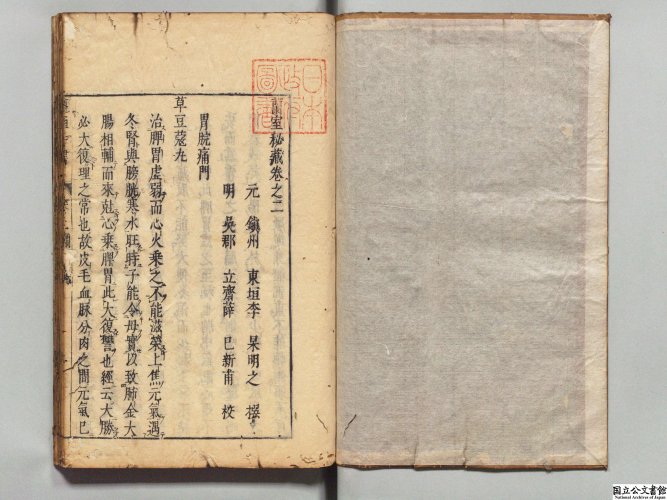 蘭室秘藏卷之二
元 鎮州 東垣李 杲明之 撰
明 吳郡 立齋薛 已新甫 校
胃脘痛門
草豆蔻丸
治脾胃虛弱而心火乘之不能滋榮上焦元氣遇
冬腎與膀胱寒水旺時子能令母實以致肺金大
腸相輔而來尅心乘脾胃此大復讐也經云大勝
必大復理之常也故皮毛血脉分肉之間元氣已
日本
政府
圖書
国立公文書館
National Archives of Japan